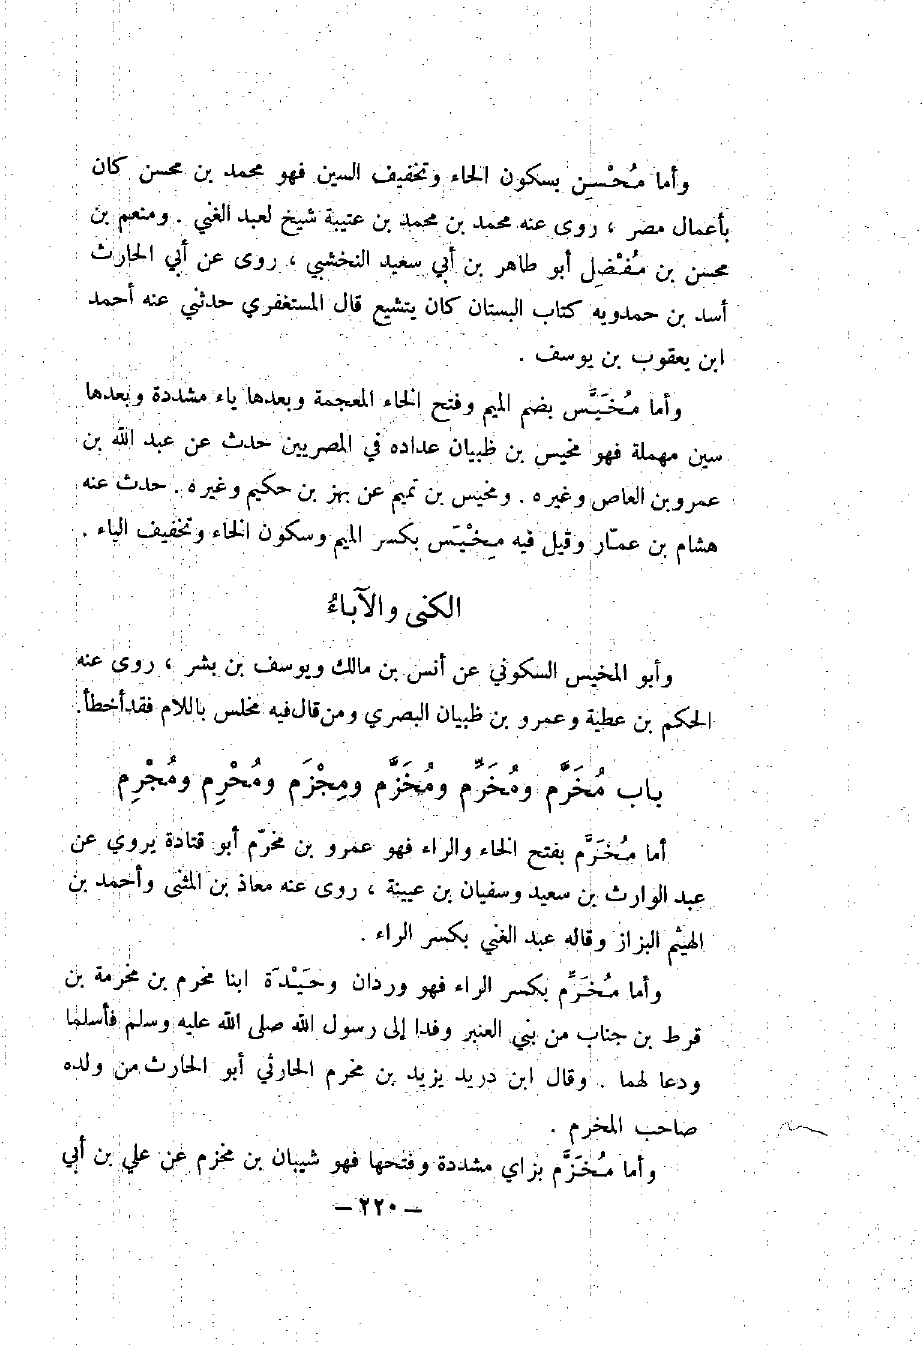 وأما مُحْسِن بسكون الحاء وتخفيف السين فهو محمد بن محسن كان
بأعمال مصر ، روى عنه محمد بن محمد بن عتيبة شيخ لعبد الغني . ومنعم بن
محسن بن مُفْضِل أبو طاهر بن أبي سعيد النخشبي ، روى عن أبي الحارث
أسد بن حمدويه كتاب البستان كان يتشيع قال المستغفري حدثني عنه أحمد
ابن يعقوب بن يوسف .
وأما مُخَيَّس بضم الميم وفتح الخاء المعجمة وبعدها ياء مشددة وبعدها
سين مهملة فهو مخيس بن ظبيان عداده في المصريين حدث عن عبد الله بن
عمرو بن العاص وغيره . ومخيس بن تميم عن بهز بن حكيم وغيره . حدث عنه
هشام بن عمّار وقيل فيه مِخْيَس بكسر الميم وسكون الخاء وتخفيف الياء .
الكنى والآباءُ
وأبو المخيس السكوني عن أنس بن مالك ويوسف بن بشر ، روى عنه
الحكم بن عطية وعمرو بن ظبيان البصري ومن قال فيه مخلس باللام فقد أخطأ.
باب مُخَرَّم ومُخَرِّم ومُخَزَّم ومِجْزَم ومُحْرِم ومُجْرِم
أما مُخَرَّم بفتح الخاء والراء فهو عمرو بن مخرّم أبو قتادة يروي عن
عبد الوارث بن سعيد وسفيان بن عيينة ، روى عنه معاذ بن المثنى وأحمد بن
الهيثم البزاز وقاله عبد الغني بكسر الراء .
وأما مُخَرِّم بكسر الراء فهو وردان وحَيْدَة ابنا مخرم بن مخرمة بن
قرط بن جناب من بني العنبر وفدا إلى رسول الله صلى الله عليه وسلم فأسلما
ودعا لهما . وقال ابن دريد يزيد بن مخرم الحارثي أبو الحارث من ولده
صاحب المخرم .
وأما مُخَزَّم بزاي مشددة وفتحها فهو شيبان بن مخزم عن علي بن أبي
— ٢٢٠ —